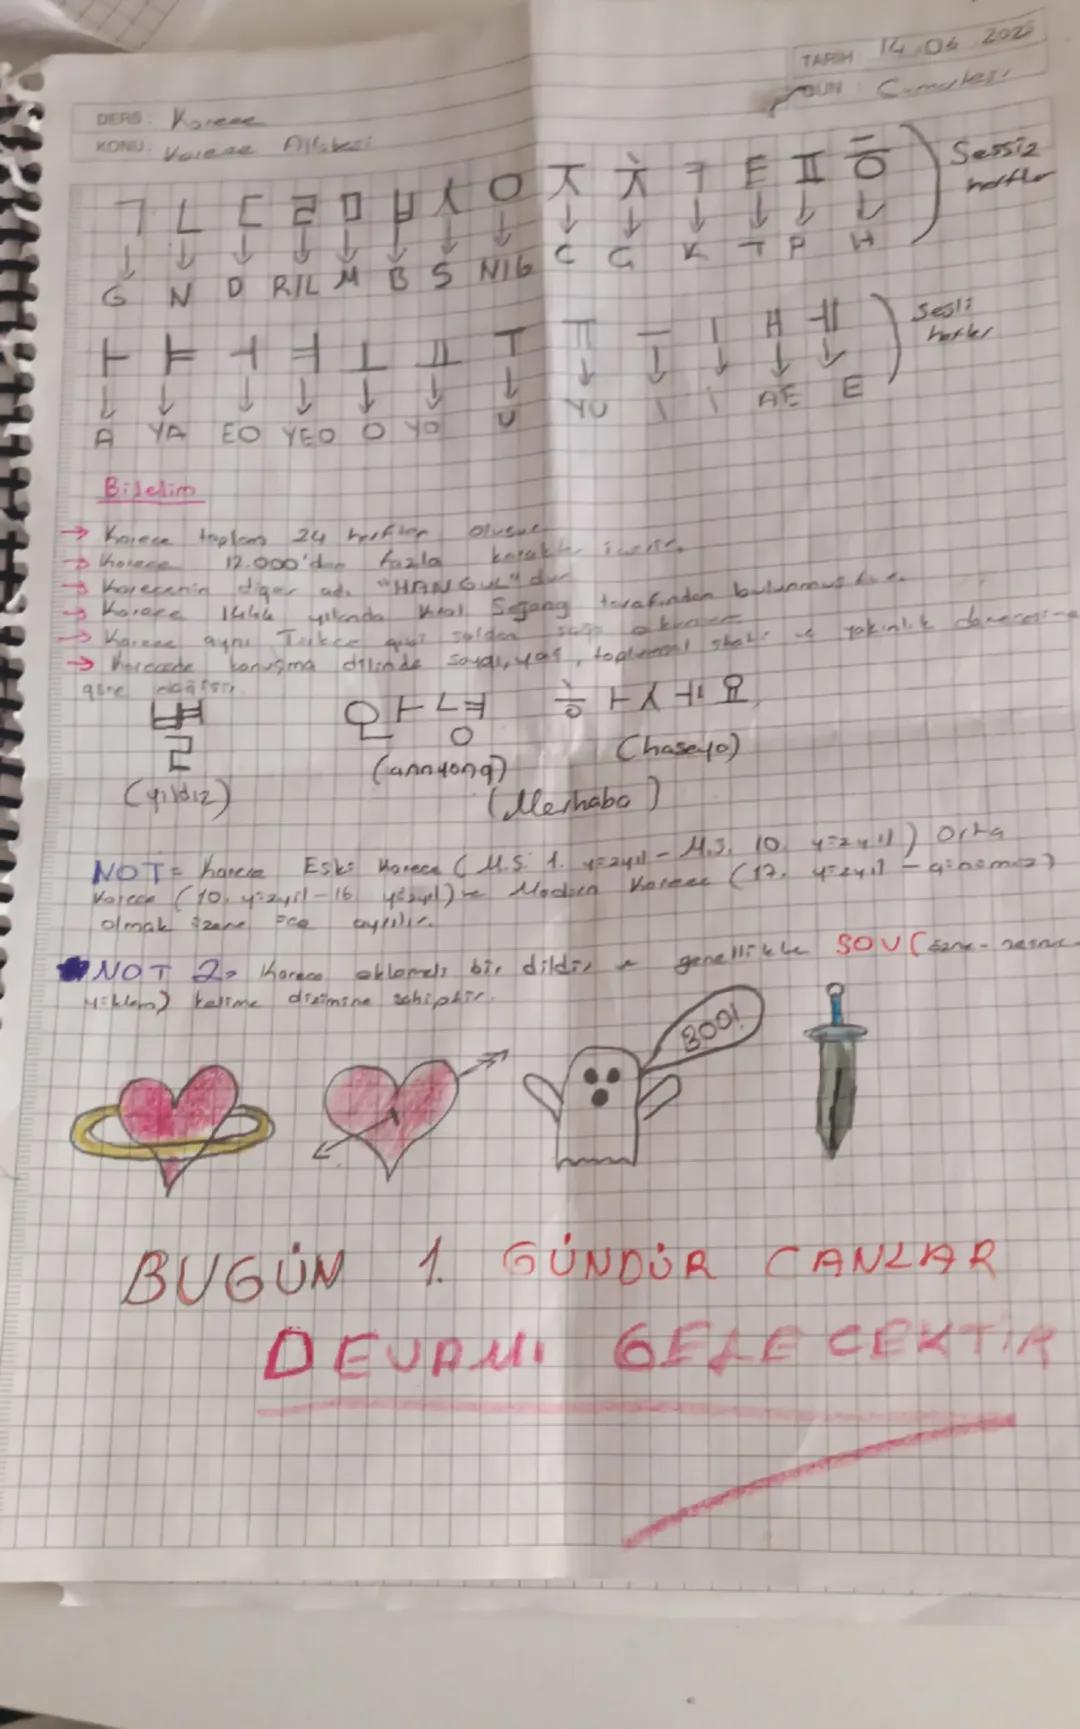 TARİH 14.06.2025
GÜN : Cumartesi
DERS : Korece
KONU: Korece Alfabesi
ㄱ ㄴ ㄷ ㄹ ㅁ ㅂ ㅅ ㅇ ㅈ ㅊ ㅋ ㅌ ㅍ ㅎ Sessiz harfler
G N D R/L M B S N/G C Ç K T P H
ㅏ ㅑ ㅓ ㅕ ㅗ ㅛ ㅜ ㅠ ㅡ ㅣ ㅐ ㅔ Sesli harfler
A YA EO YEO O YO U YU I I AE E
Bilelim
→ Korece toplam 24 harften oluşur
→ Korece 12.000'den fazla karakter içerir.
→ Korecenin diğer adı "HANGUL" dur
→ Korece 1444 yılında Kral Segong tarafından bulunmuştur.
→ Korece aynı Türkçe gibi soldan sağa okunur
→ Korecede konuşma dilinde saygı, yaş, toplumsal statü ve yakınlık derecesine
göre değişir.
ㅇㅏㄴㄴㅕㅇ ㅎㅏㅅㅔ요
(yıldız) (annyong) (haseyo)
(Merhaba)
NOT= Korece Eski Korece (M.S. 1. yüzyıl - M.S. 10. yüzyıl) Orta
Korece (10. yüzyıl - 16. yüzyıl) ve Modern Korece (17. yüzyıl - günümüz)
olmak üzere üçe ayrılır.
NOT 2= Korece eklemeli bir dildir ve genellikle SOV (özne - nesne -
yüklem) kelime dizimine sahiptir.
BOO!
BUGÜN 1. GÜNDÜR CANLAR
DEVAMI GELECEKTİR